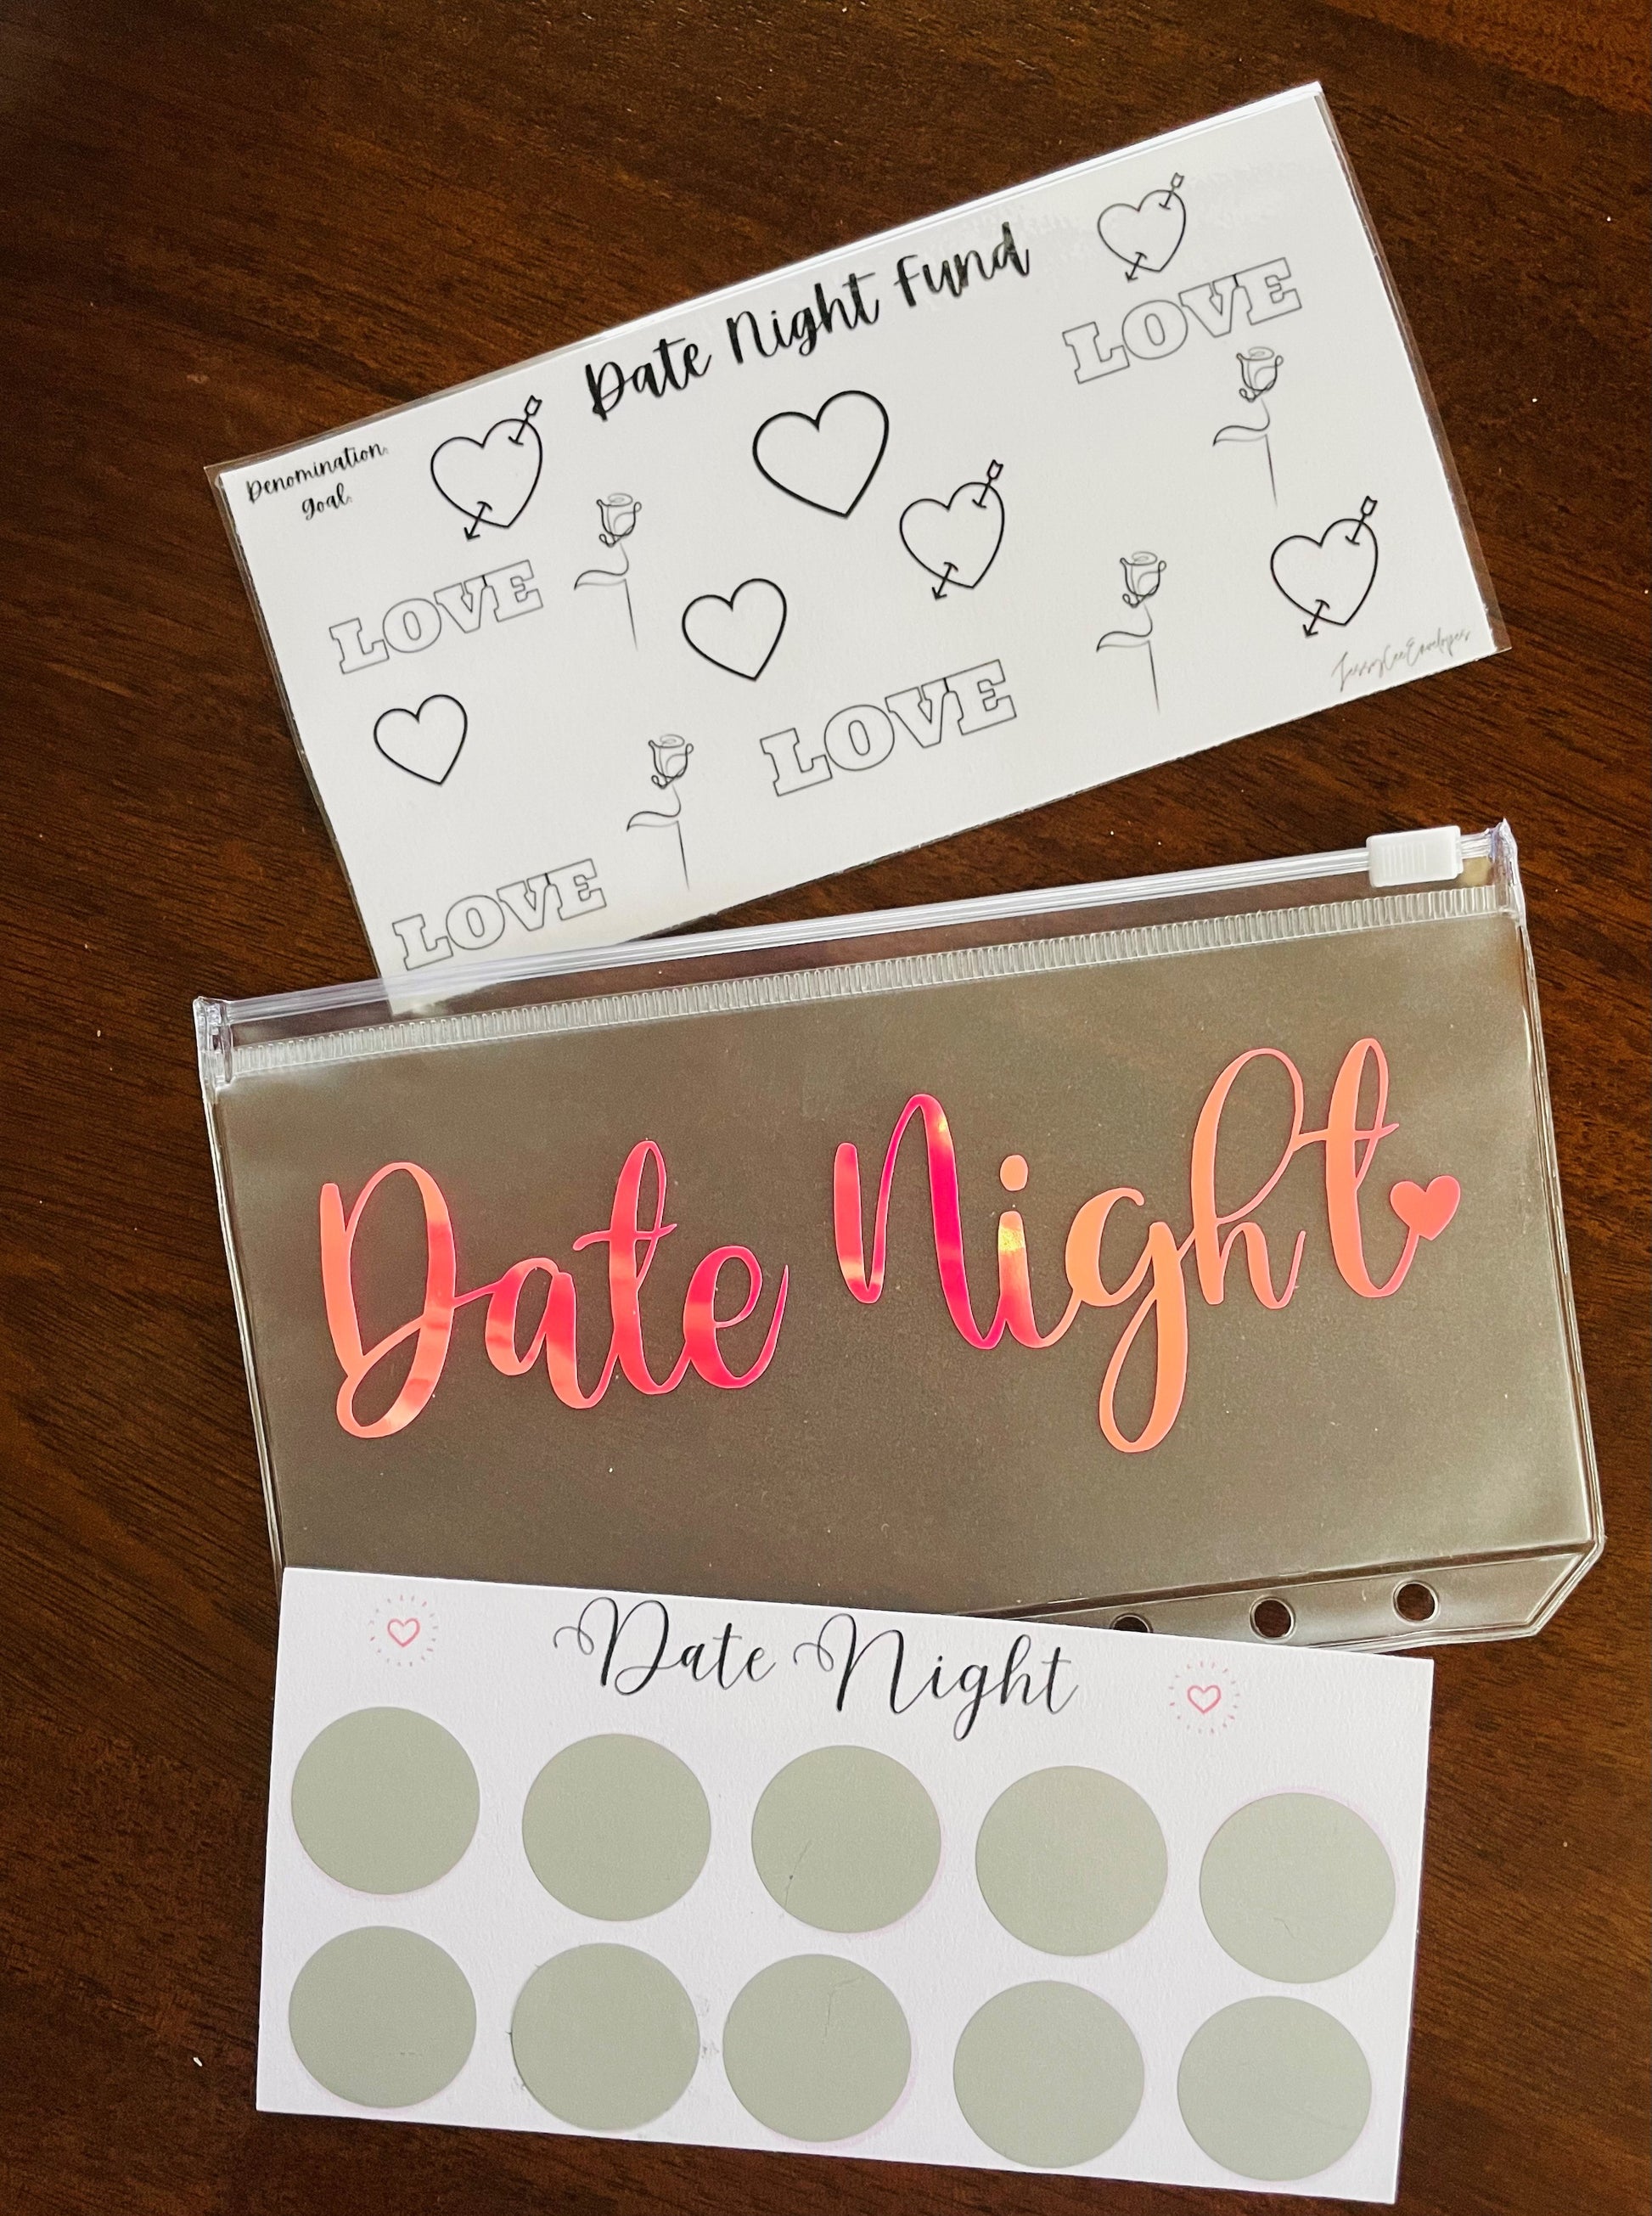 Date Night Fund
Denomination:
Goal:
LOVE
LOVE
LOVE
LOVE
Date Night
Date Night